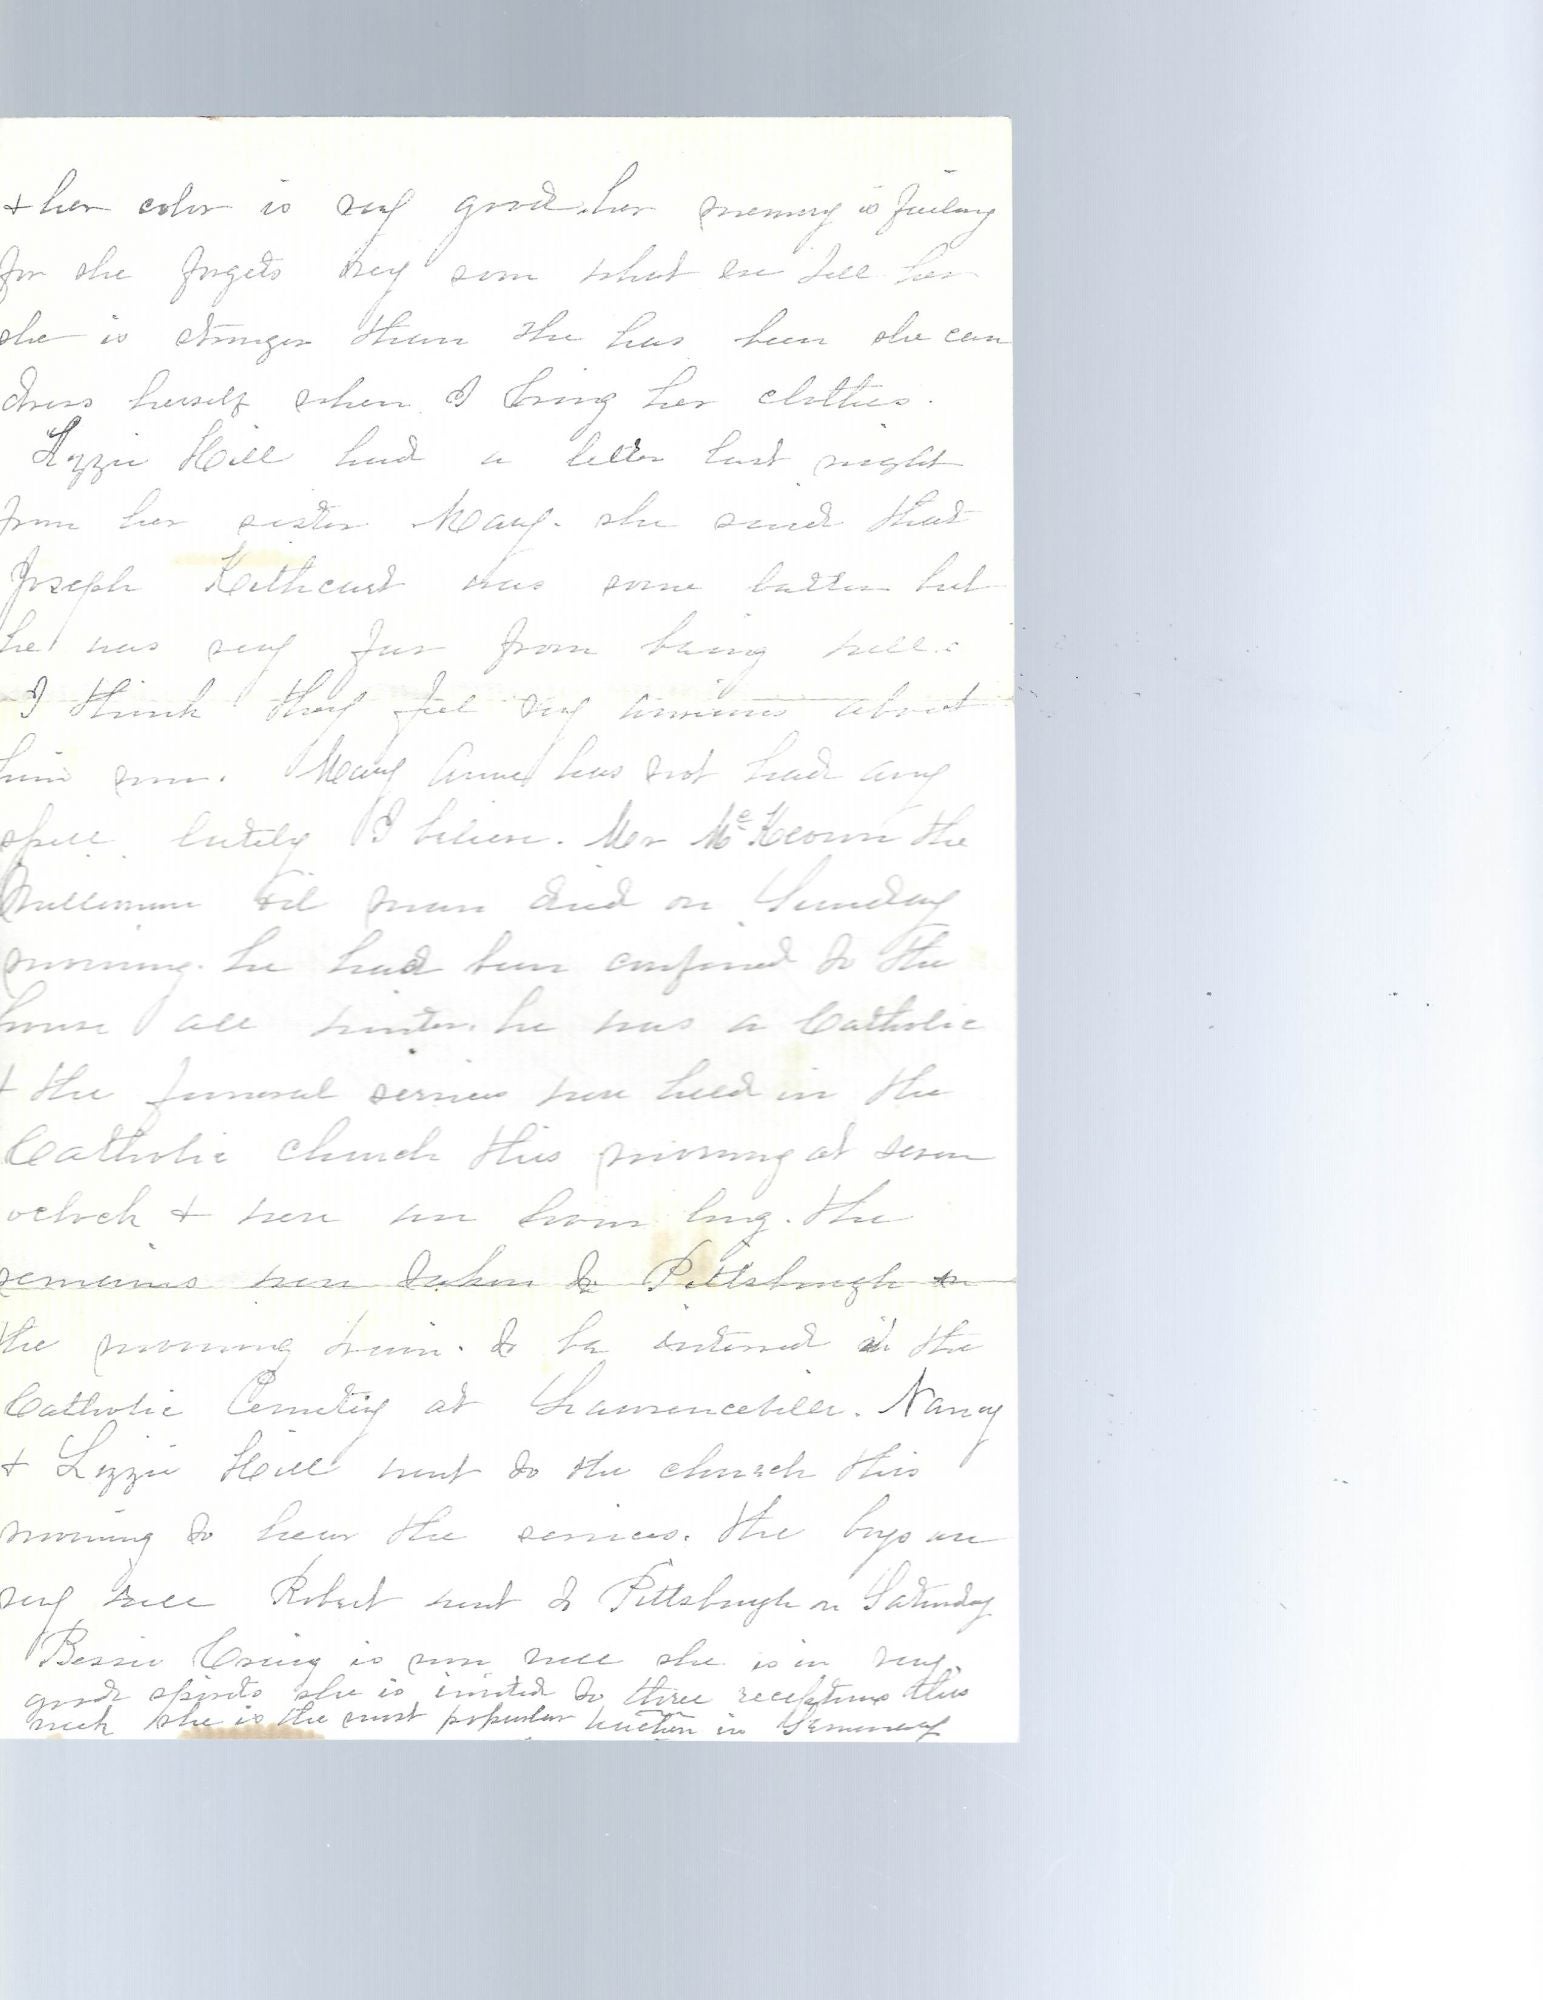 + her color is very good. her memory is failing
for she forgets very soon what we tell her
she is stronger than she has been she can
dress herself when I bring her clothes.
Lizzie Hill had a letter last night
from her sister Mary. she said that
Joseph Kithcart was some better but
he was very far from being well.
I think they feel very anxious about
him now. Mary Anne has not had any
spell lately I believe. Mr McKeown the
millionare oil man died on Sunday
morning. he had been confined to the
house all winter. he was a Catholic
+ the funeral services were held in the
Catholic church this morning at seven
oclock + were an hour long. the
remains were taken to Pittsburgh on
the morning train. to be interred in the
Catholic Cemetery at Lawrenceville. Nancy
+ Lizzie Hill went to the church this
morning to hear the services. the boys are
very well Robert went to Pittsburgh on Saturday
Bessie Craig is now well she is in very
good spirits she is invited to three receptions this
week she is the most popular teacher in Seminary